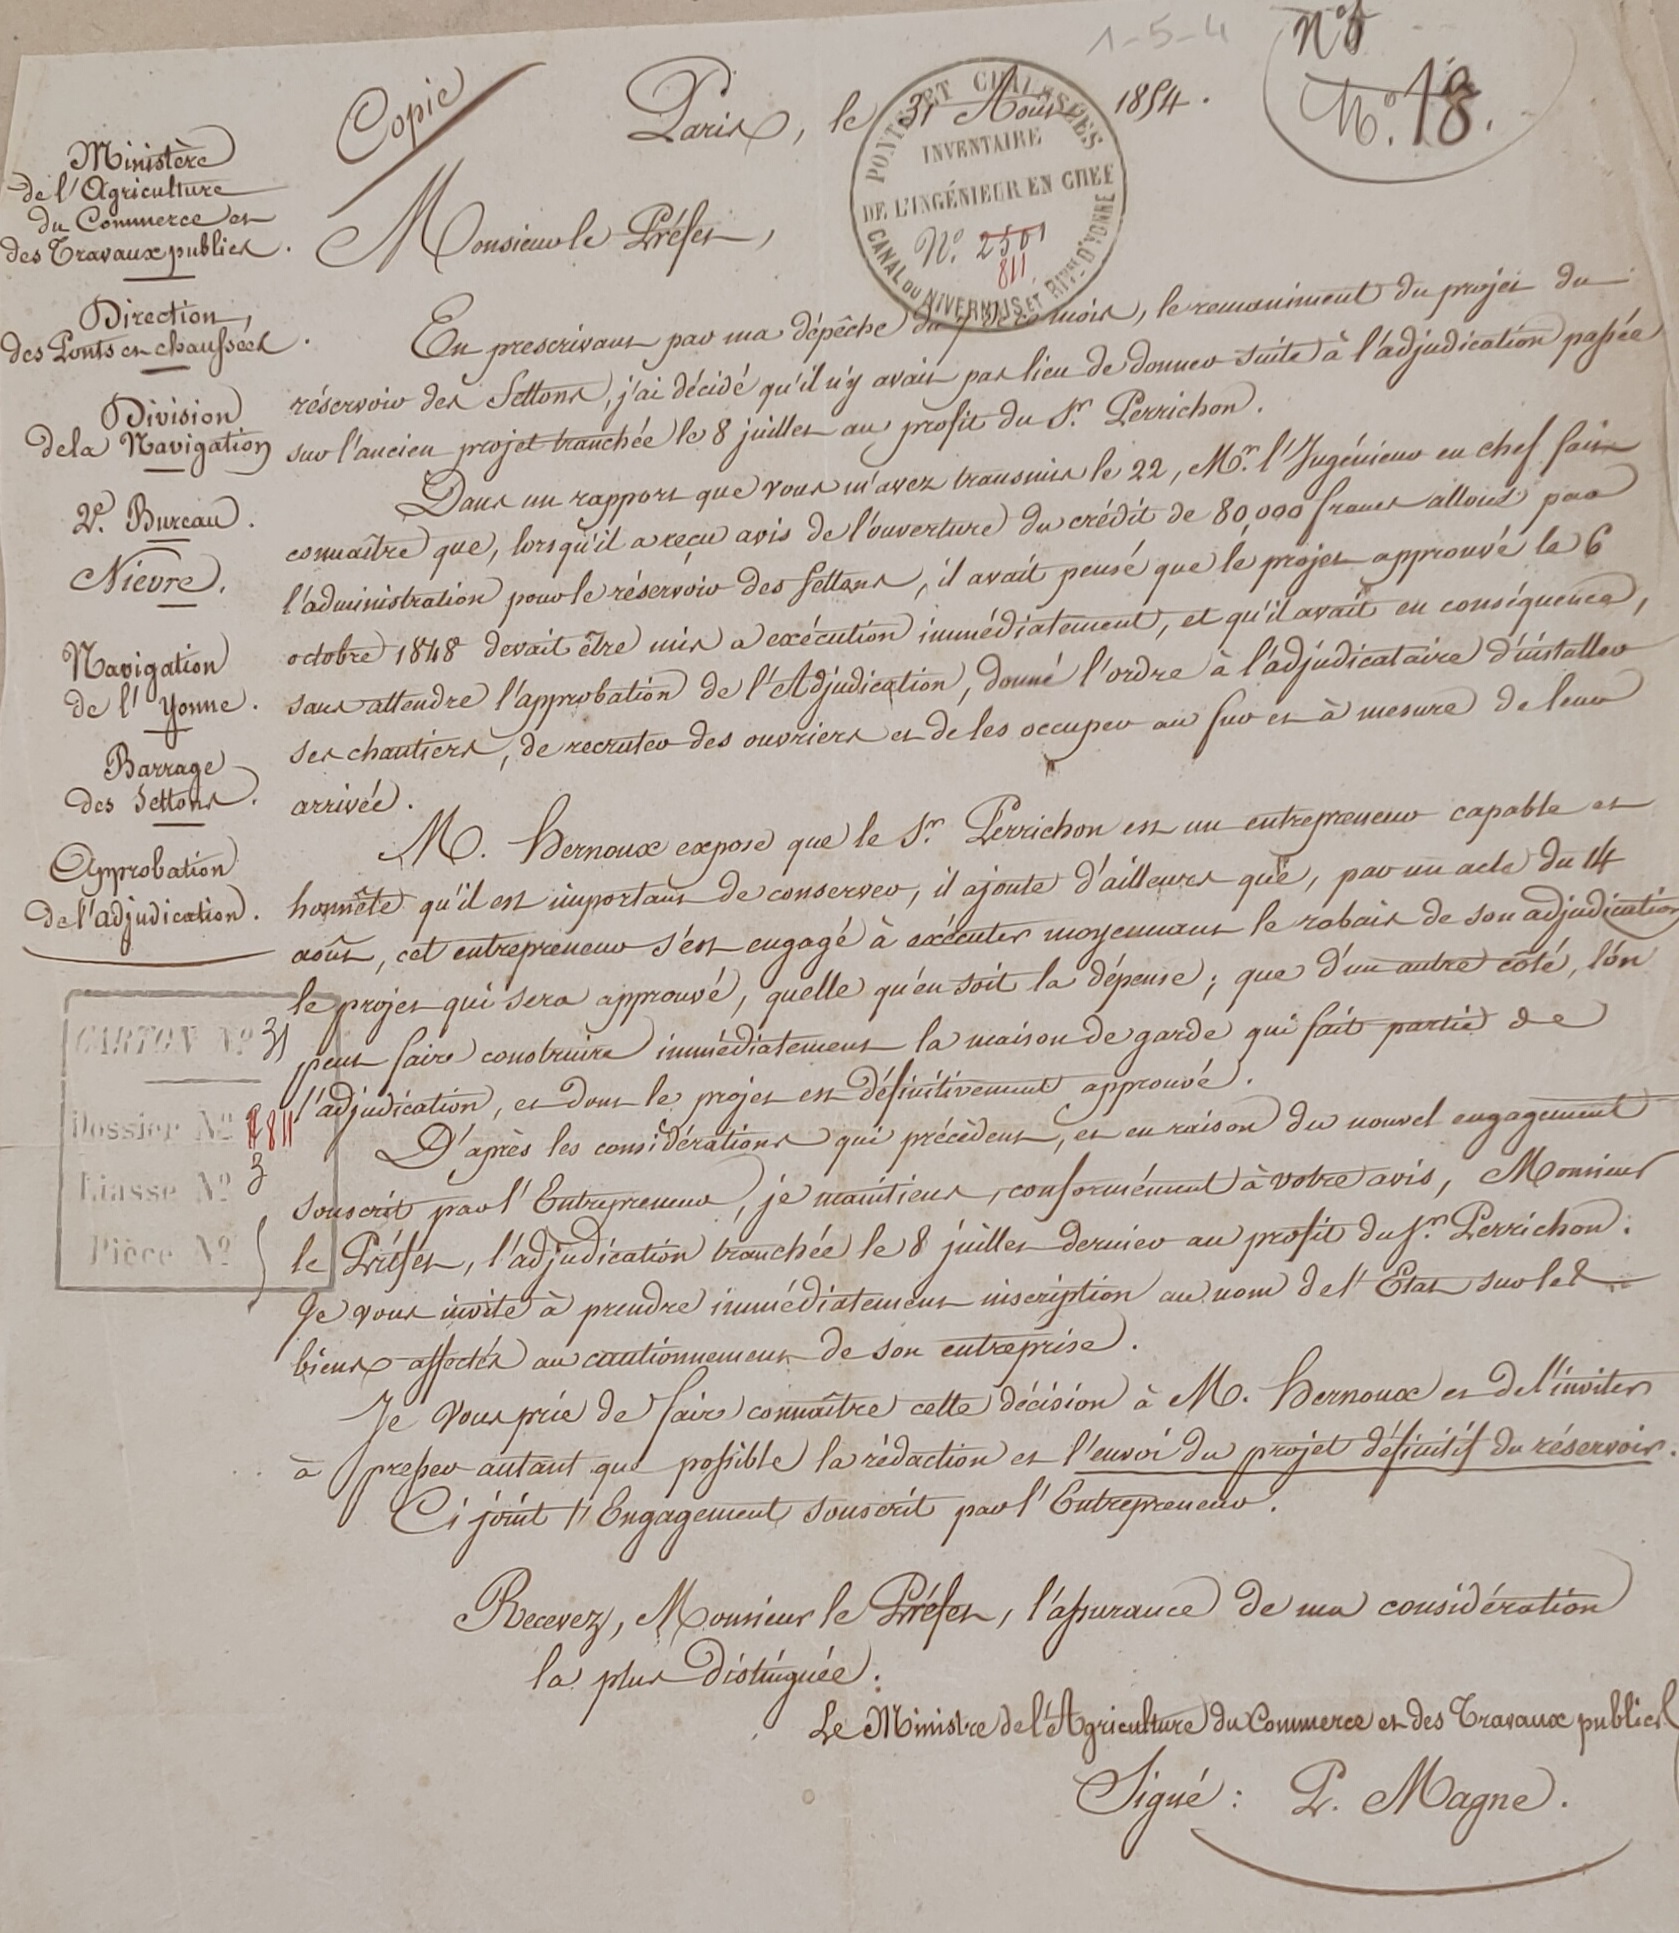 1-5-4
N°
N°. 18.
Copie
Paris, le 31 Août 1854.
PONTS ET CHAUSSÉES
INVENTAIRE
DE L'INGÉNIEUR EN CHEF
N°. 2501
811
CANAL DU NIVERNAIS ET RIVre D'YONNE
Ministère
de l'Agriculture
du Commerce et
des Travaux publics.
Direction
des Ponts et chaussées.
Division
de la Navigation
2e. Bureau.
Nièvre.
Navigation
de l'Yonne.
Barrage
des Settons.
Approbation
de l'adjudication.
CARTON N° 31
Dossier N° 811
Liasse N° 3
Pièce N°
Monsieur le Préfet,
En prescrivant par ma dépêche du 7 de ce mois, le remaniment du projet du
réservoir des Settons, j'ai décidé qu'il n'y avait pas lieu de donner suite à l'adjudication passée
sur l'ancien projet tranchée le 8 juillet au profit du Sr. Perrichon.
Dans un rapport que vous m'avez transmis le 22, Mr. l'Ingénieur en chef fait
connaître que, lorsqu'il a reçu avis de l'ouverture du crédit de 80,000 francs alloué par
l'administration pour le réservoir des Settons, il avait pensé que le projet approuvé le 6
octobre 1848 devait être mis a exécution immédiatement, et qu'il avait en conséquence,
sans attendre l'approbation de l'Adjudication, donné l'ordre à l'adjudicataire d'installer
ses chantiers, de recruter des ouvriers et de les occuper au fur et à mesure de leur
arrivée.
M. Hernoux expose que le Sr. Perrichon est un entrepreneur capable et
honnête qu'il est important de conserver, il ajoute d'ailleurs que, par un acte du 14
août, cet entrepreneur s'est engagé à exécuter moyennant le rabais de son adjudication
le projet qui sera approuvé, quelle qu'en soit la dépense; que d'un autre côté, l'on
peut faire construire immédiatement la maison de garde qui fait partie de
l'adjudication, et dont le projet est définitivement approuvé.
D'après les considérations qui précèdent, et en raison du nouvel engagement
souscrit par l'Entrepreneur, je maintiens, conformément à votre avis, Monsieur
le Préfet, l'adjudication tranchée le 8 juillet dernier au profit du Sr. Perrichon.
Je vous invite à prendre immédiatement inscription au nom de l'Etat sur les
biens affectés au cautionnement de son entreprise.
Je vous prie de faire connaître cette décision à M. Hernoux et de l'inviter
à presser autant que possible la rédaction et l'envoi du projet définitif du réservoir.
Ci joint l'Engagement souscrit par l'Entrepreneur.
Recevez, Monsieur le Préfet, l'assurance de ma considération
la plus distinguée.
Le Ministre de l'Agriculture du Commerce et des Travaux publics
Signé: P. Magne.